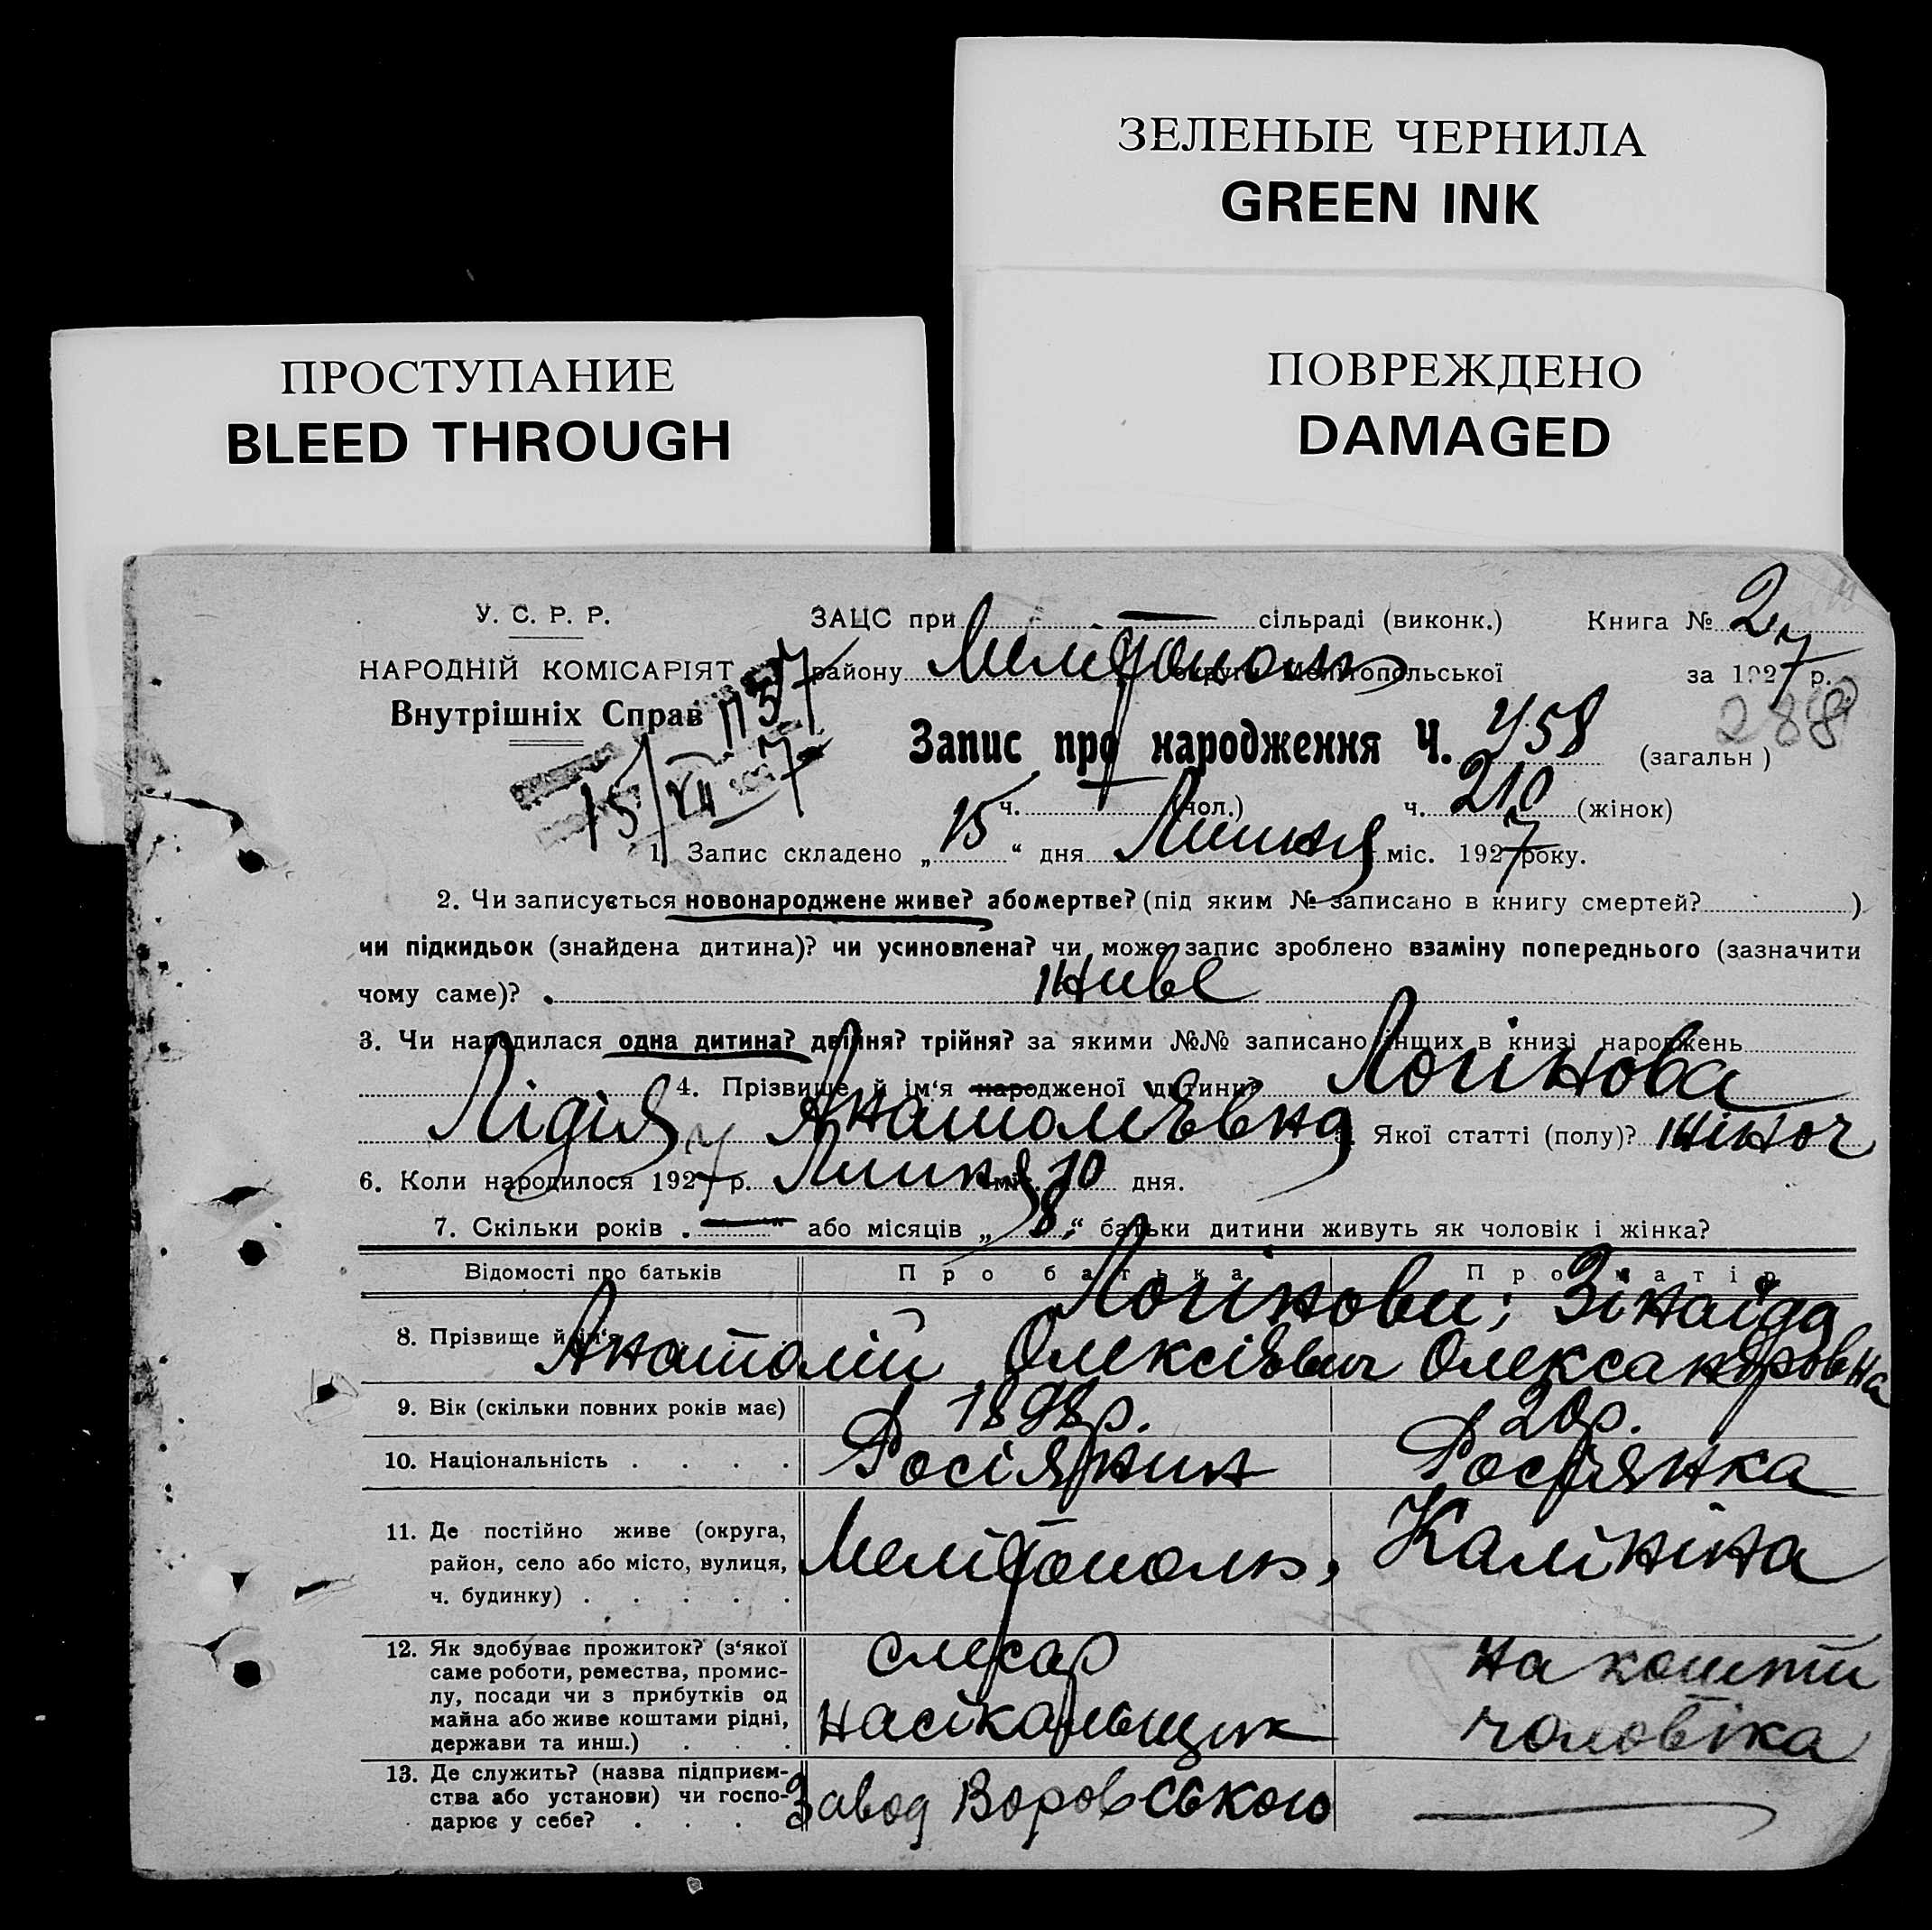 ЗЕЛЕНЫЕ ЧЕРНИЛА
GREEN INK
ПРОСТУПАНИЕ
BLEED THROUGH
ПОВРЕЖДЕНО
DAMAGED
У. С. Р. Р.
НАРОДНІЙ КОМІСАРІЯТ
Внутрішніх Справ
ЗАЦС при — сільраді (виконк.) Книга № 2
району Мелітополь округи Мелітопольської за 1927 р.
288
15/VII 7
Запис про народження Ч. 458 (загальн)
ч. (чол.) ч. 210 (жінок)
1. Запис складено „15“ дня Липня міс. 1927 року.
2. Чи записується новонароджене живе? або мертве? (під яким № записано в книгу смертей? )
чи підкидьок (знайдена дитина)? чи усиновлена? чи може запис зроблено взаміну попереднього (зазначити
чому саме)? живе
3. Чи народилася одна дитина? двійня? трійня? за якими №№ записано інших в книзі народжень
4. Прізвище й ім‘я народженої дитини? Логінова
Лідія Анатолієвна Якої статті (полу)? жіноч
6. Коли народилося 1927 р. Липня міс. 10 дня.
7. Скільки років „—“ або місяців „8“ батьки дитини живуть як чоловік і жінка?
Відомості про батьків Про батька Про матір
Логінови; Зінаїда
8. Прізвище й ім‘я Анатолій Олексієвич Олександровна
9. Вік (скільки повних років має) 1898р. 20р.
10. Національність . . . . Росіянин Росіянка
11. Де постійно живе (округа,
район, село або місто, вулиця,
ч. будинку) . . . . .
Мелітополь, Калініна
12. Як здобуває прожиток? (з‘якої
саме роботи, ремества, промис-
лу, посади чи з прибутків од
майна або живе коштами рідні,
держави та инш.) . . .
слесар
насікальщик
на кошти
чоловіка
13. Де служить? (назва підприєм-
ства або установи) чи госпо-
дарює у себе? . . .
Завод Воровського —